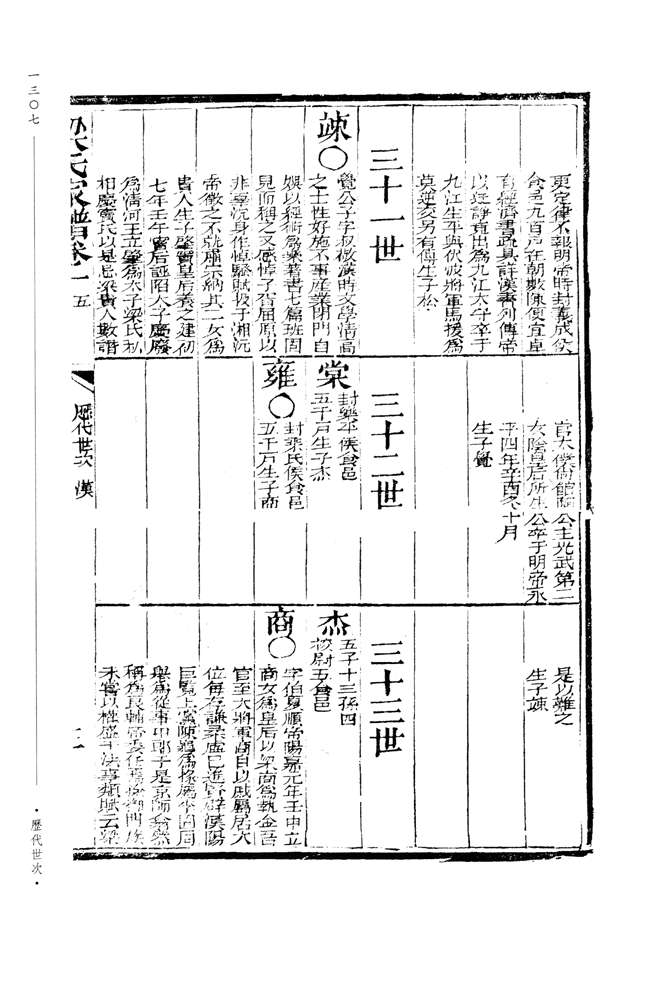 一三〇七
更定律不報明帝時封義成侯
食邑九百戶在朝數陳便宜卓
有經濟書疏具詳漢書列傳帝
以廷諍責出為九江太守卒于
九江生平與伏波將軍馬援為
莫逆交另有傳生子松
三十一世
竦〇
覺公子字叔敬漢時文學清高
之士性好施不事產業閉門自
娛以經術為樂著書七篇班固
見而稱之又感悼子胥屈原以
非辜沉身作悼騷賦投于湘沅
帝徵之不就肅宗納其二女為
貴人生子肇竇皇后養之建初
七年壬午竇后誣陷太子慶廢
為清河王立肇為太子梁氏私
相慶竇氏以是忌梁貴人數譖
官太僕尚館陶公主光武第三
女陰皇后所生公卒于明帝永
平四年辛酉冬十月
生子覺
三十二世
棠
封樂平侯食邑
五千戶生子杰
雍〇
封乘氏侯食邑
五千戶生子商
是以離之
生子竦
三十三世
杰
五子十三孫四
校尉五食邑
商〇
字伯夏順帝陽嘉元年壬申立
商女為皇后以梁商為執金吾
官至大將軍商自以戚屬居大
位每存謙柔虛己進賢辟漢陽
巨覽上黨陳龜為掾屬李固周
舉為從事中郎于是京師翕然
稱為良輔帝委任焉檢御門族
未嘗以權盛干法事類賦云梁
梁氏家譜卷一 五
歷代世次 漢
·歷代世次·